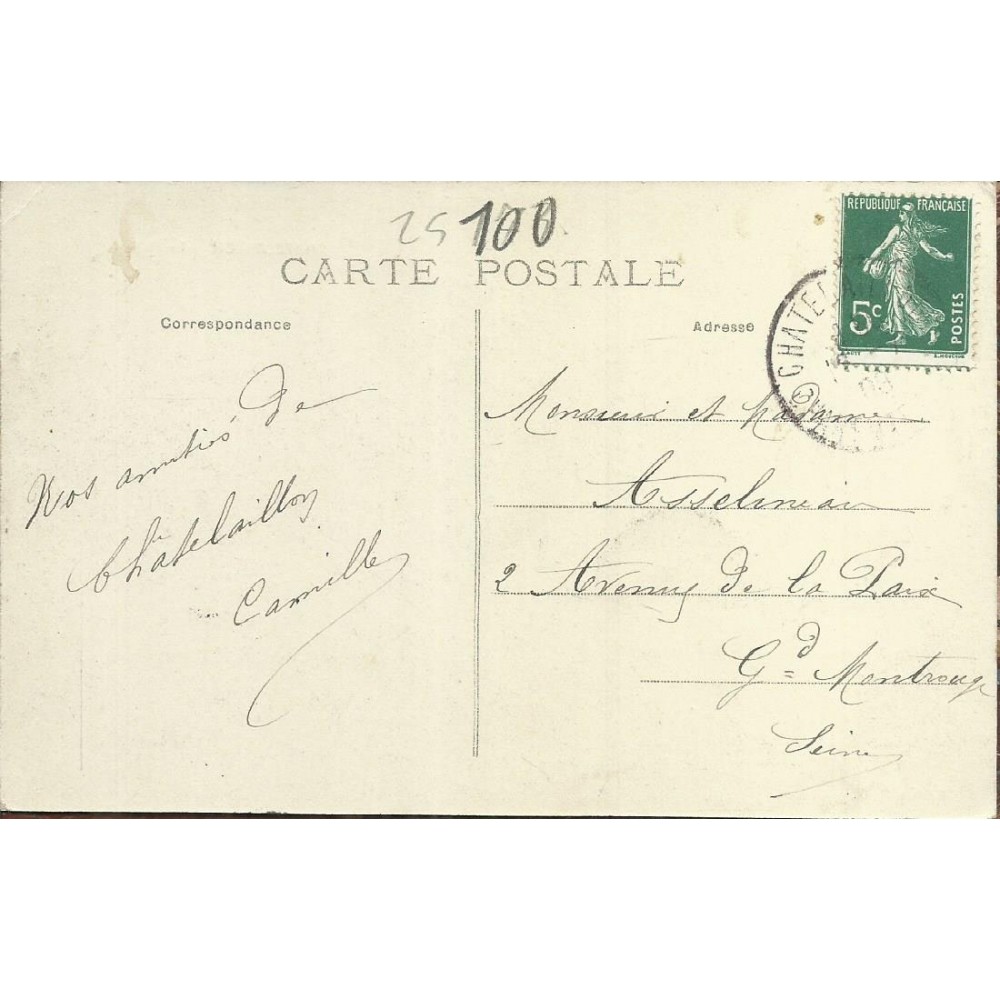 25 100
CARTE POSTALE
Correspondance
Adresse
RÉPUBLIQUE FRANÇAISE
5c
POSTES
CHATEL
3
09
Nos amitiés de
Chatelaillon
Camille
Monsieur et Madame
Asselineau
2 Avenue de la Paix
Gd Montrouge
Seine